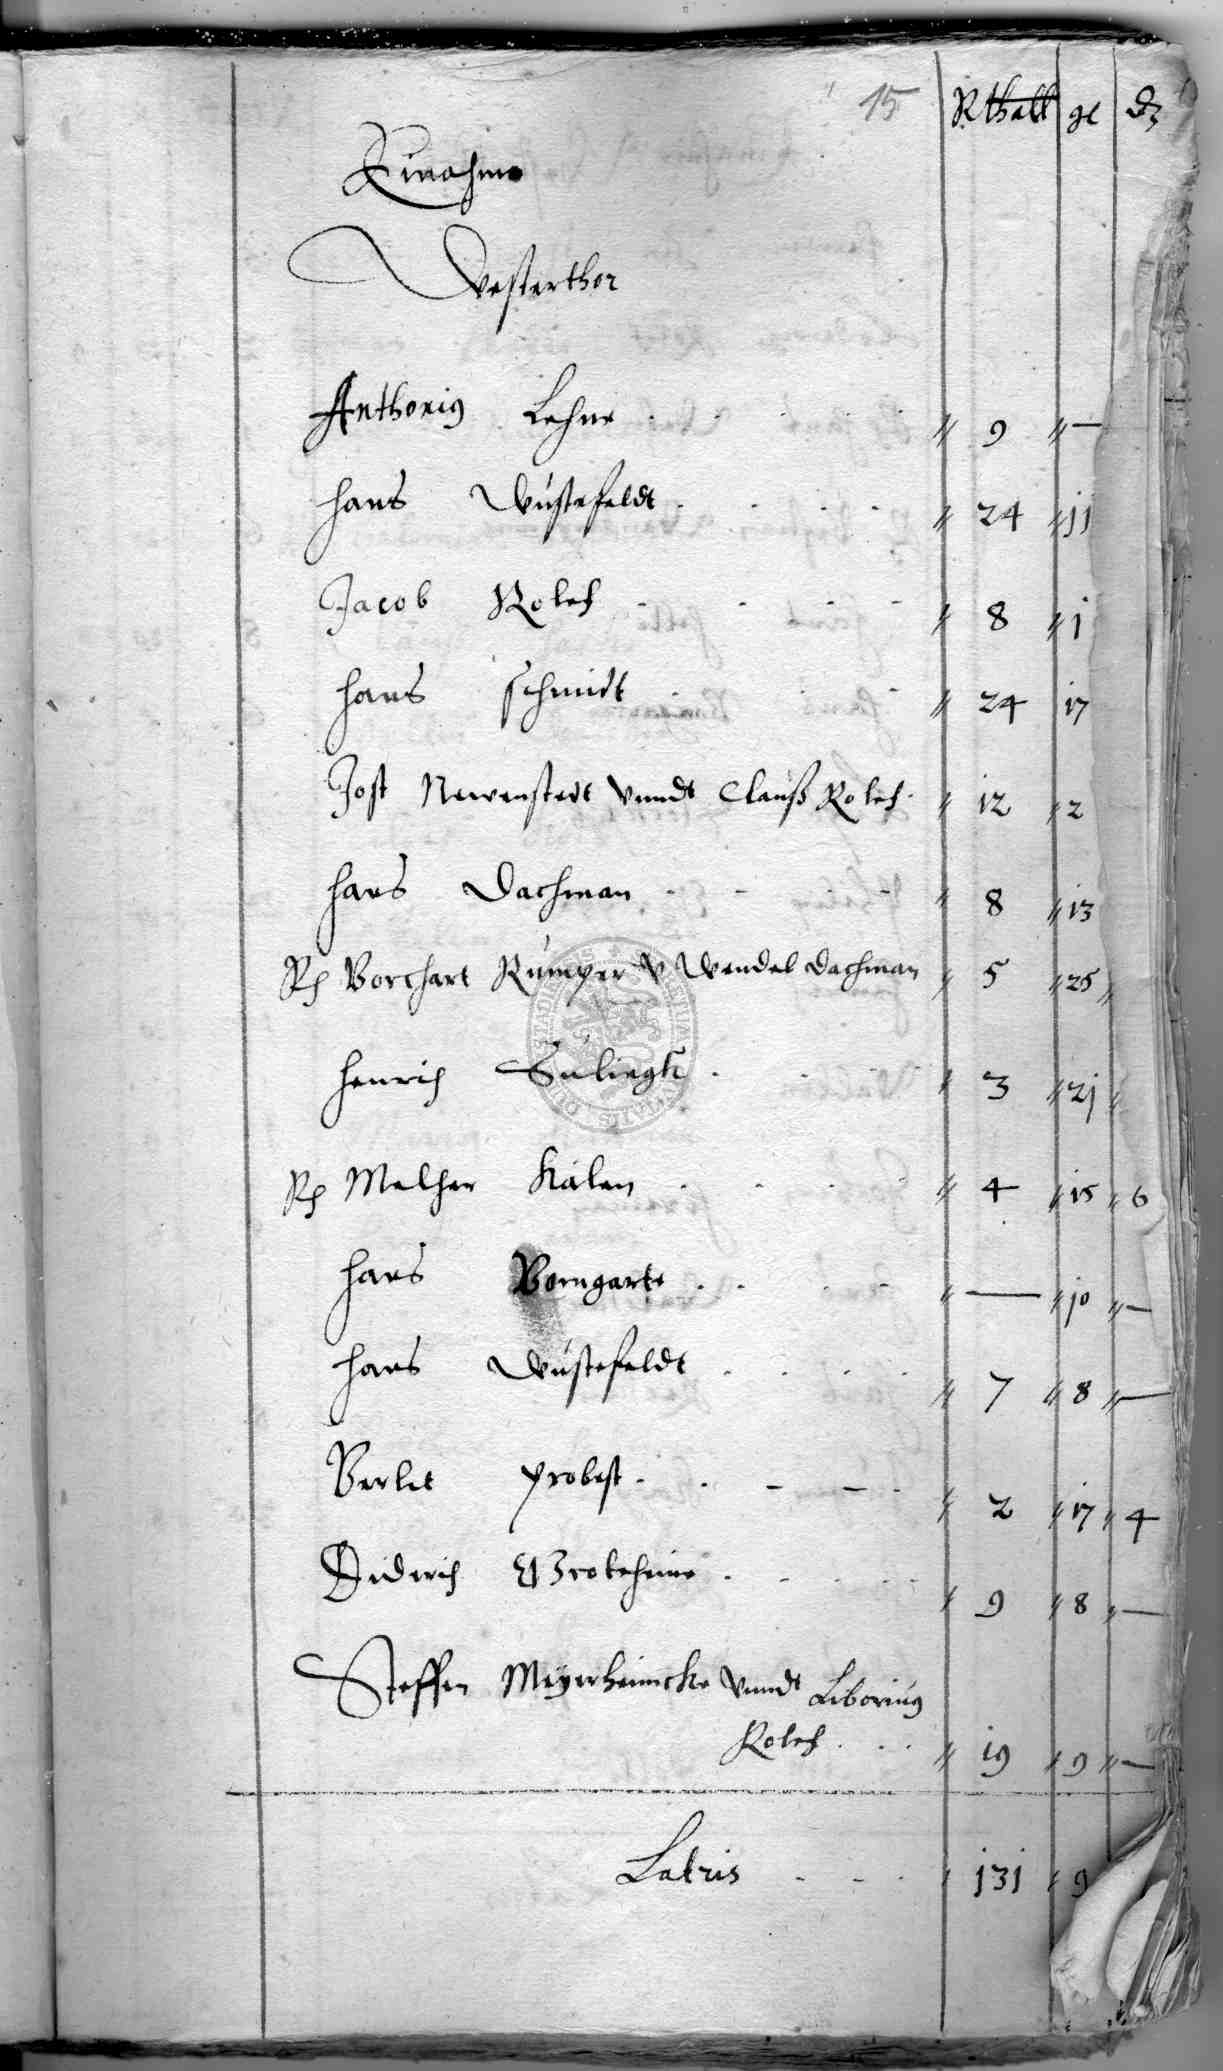 15 Rthall gl d
Einahme
Westerthor
Anthonius Lehne . . . " 9 " —
Hans Wüstefeldt . . . " 24 " 11
Jacob Rolef . . . " 8 " 1
Hans Schmidt . . " 24 17
Jost Newenstedt vnndt Clauß Rolef . " 12 " 2
Hans Dachman . . . " 8 " 13
Borchart Rümper v Wendel Dachman " 5 " 25 "
Henrich Süliegk . . . " 3 " 21 "
Melher Kálen . . . . " 4 " 15 " 6
Hans Bomgarte . . . . " — " 10 " —
Hans Wüstefeldt . . . . " 7 " 8 " —
Berlet Probest . . . . . " 2 " 17 " 4
Diderich . . . . . " 9 " 8 " —
Steffen Meyerheincke vnndt Liborius
Rolef . . . " 19 " 9 " —
Latris . . . " 131 " 9